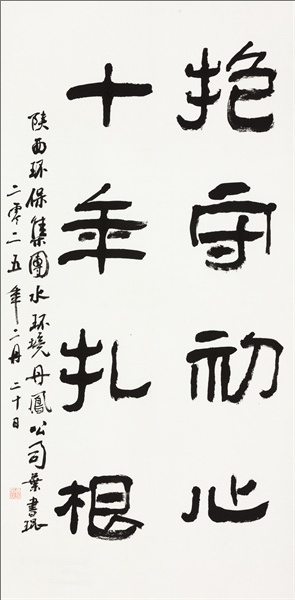 抱守初心
十年扎根
陕西环保集團水环境丹鳳公司葉書环
二零二五年二月二十日